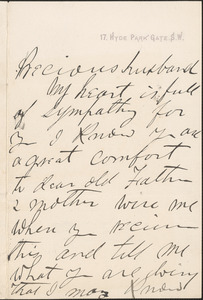 17. HYDE PARK GATE. S.W.
Precious husband
My heart is full
of sympathy for
you I know you are
a great comfort
to dear old Father
& mother wire me
when you receive
this and tell me
what you are doing
that I may know